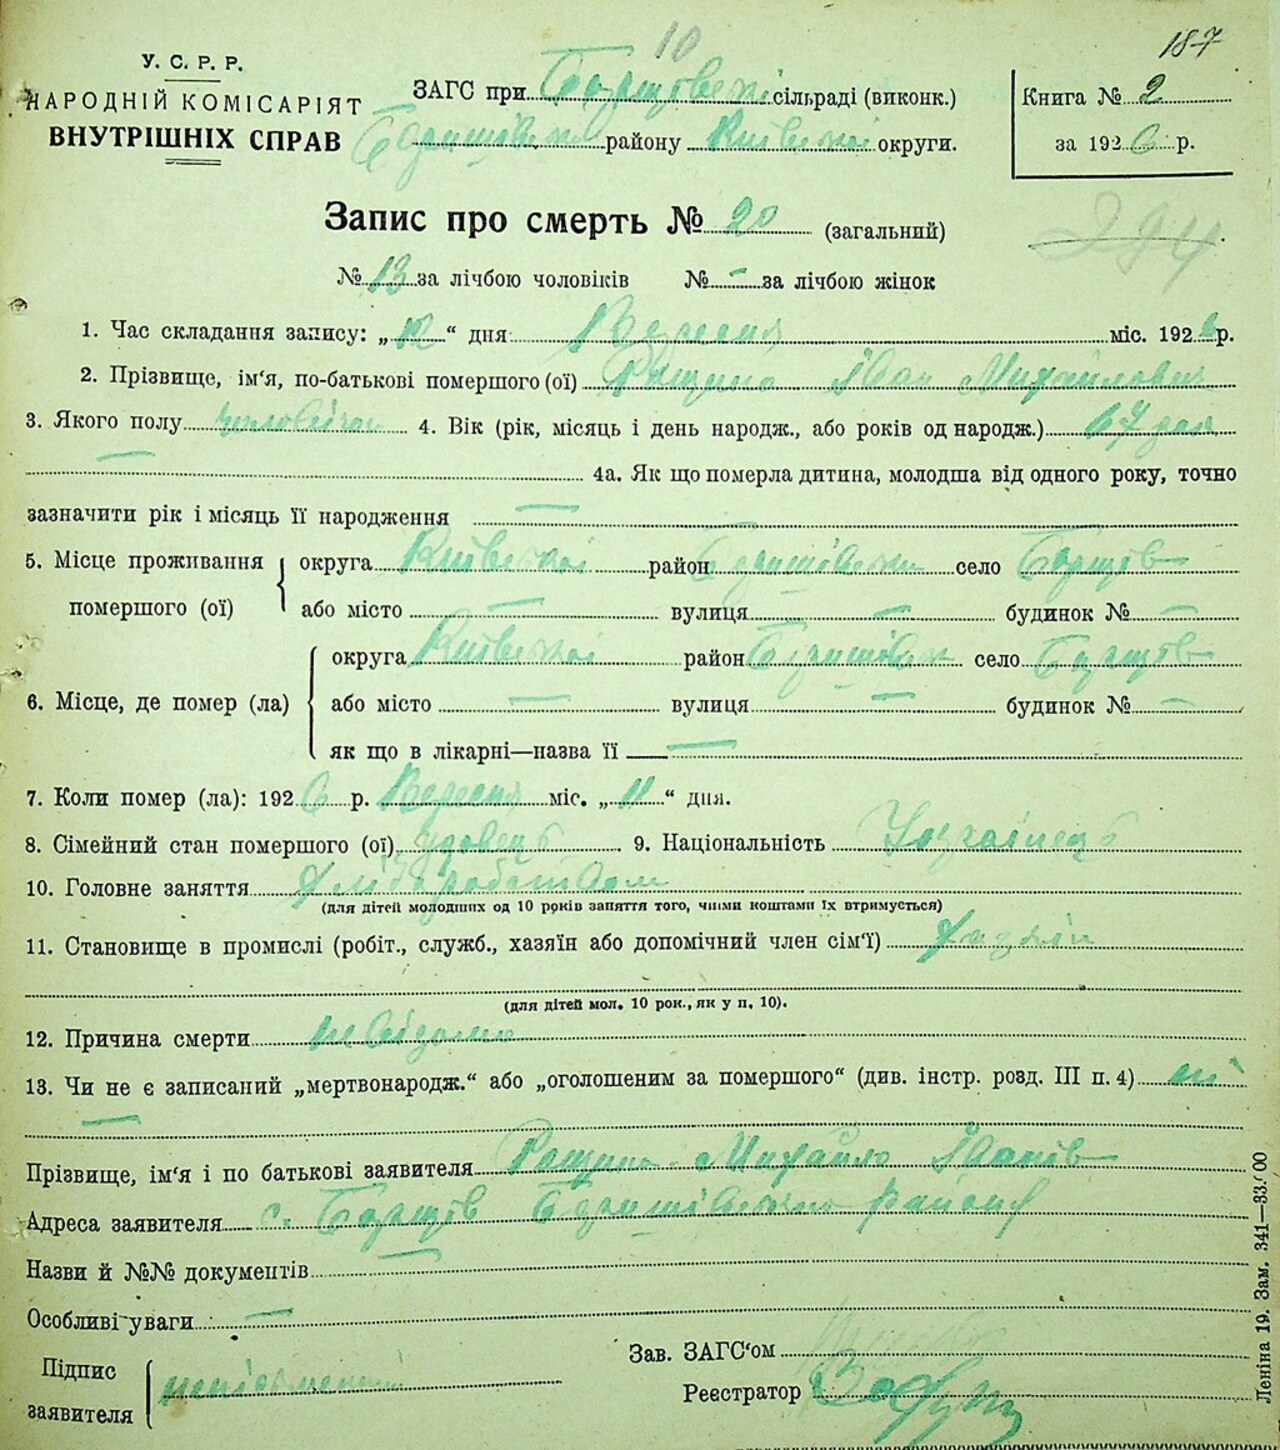 10
187
У. С. Р. Р.
НАРОДНІЙ КОМІСАРІЯТ
ВНУТРІШНІХ СПРАВ
ЗАГС при Борщовскі сільраді (виконк.)
району Київскої округи.
Книга № 2
за 1926 р.
Запис про смерть № 20 (загальний)
294
№ 13 за лічбою чоловіків № - за лічбою жінок
1. Час складання запису: „12“ дня Вересня міс. 1926 р.
2. Прізвище, ім'я, по-батькові помершого (ої) Рощина Іван Михайлович
3. Якого полу 4. Вік (рік, місяць і день народж., або років од народж.) 67
— 4а. Як що померла дитина, молодша від одного року, точно
зазначити рік і місяць її народження —
5. Місце проживання
помершого (ої)
округа Київскої район село Борщів
або місто — вулиця — будинок № —
6. Місце, де помер (ла)
округа Київскої район село Борщів
або місто — вулиця — будинок № —
як що в лікарні—назва її —
7. Коли помер (ла): 1926 р. Вересня міс. „11“ дня.
8. Сімейний стан помершого (ої) удовець 9. Національність Українець
10. Головне заняття
(для дітей молодших од 10 років заняття того, чиїми коштами їх втримується)
11. Становище в промислі (робіт., служб., хазяїн або допомічний член сім'ї) Хазяїн
(для дітей мол. 10 рок., як у п. 10).
12. Причина смерти невідома
13. Чи не є записаний „мертвонародж.“ або „оголошеним за помершого“ (див. інстр. розд. III п. 4) ні
—
Прізвище, ім'я і по батькові заявителя Рощина Михайло Іванів
Адреса заявителя с. Борщів району
Назви й №№ документів —
Особливі уваги —
Підпис
заявителя
неписьменний
Зав. ЗАГС'ом
Реєстратор
Леніна 19. Зам. 341—33.000